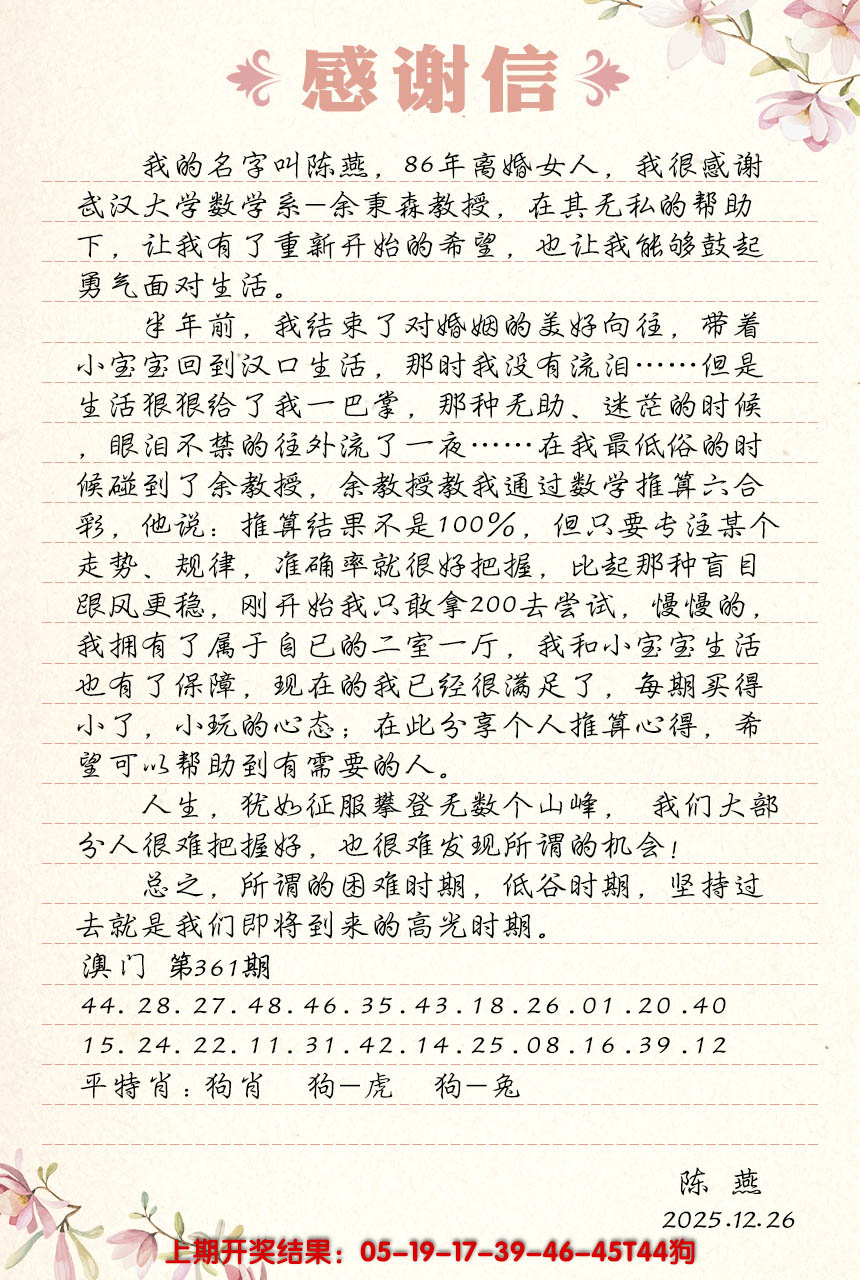 感谢信
我的名字叫陈燕，86年离婚女人，我很感谢
武汉大学数学系-余秉森教授，在其无私的帮助
下，让我有了重新开始的希望，也让我能够鼓起
勇气面对生活。
半年前，我结束了对婚姻的美好向往，带着
小宝宝回到汉口生活，那时我没有流泪……但是
生活狠狠给了我一巴掌，那种无助、迷茫的时候
，眼泪不禁的往外流了一夜……在我最低俗的时
候碰到了余教授，余教授教我通过数学推算六合
彩，他说：推算结果不是100%，但只要专注某个
走势、规律，准确率就很好把握，比起那种盲目
跟风更稳，刚开始我只敢拿200去尝试，慢慢的，
我拥有了属于自已的二室一厅，我和小宝宝生活
也有了保障，现在的我已经很满足了，每期买得
小了，小玩的心态；在此分享个人推算心得，希
望可以帮助到有需要的人。
人生，犹如征服攀登无数个山峰， 我们大部
分人很难把握好，也很难发现所谓的机会！
总之，所谓的困难时期，低谷时期，坚持过
去就是我们即将到来的高光时期。
澳门 第361期
44.28.27.48.46.35.43.18.26.01.20.40
15.24.22.11.31.42.14.25.08.16.39.12
平特肖：狗肖 狗-虎 狗-兔
陈 燕
2025.12.26
上期开奖结果：05-19-17-39-46-45T44狗